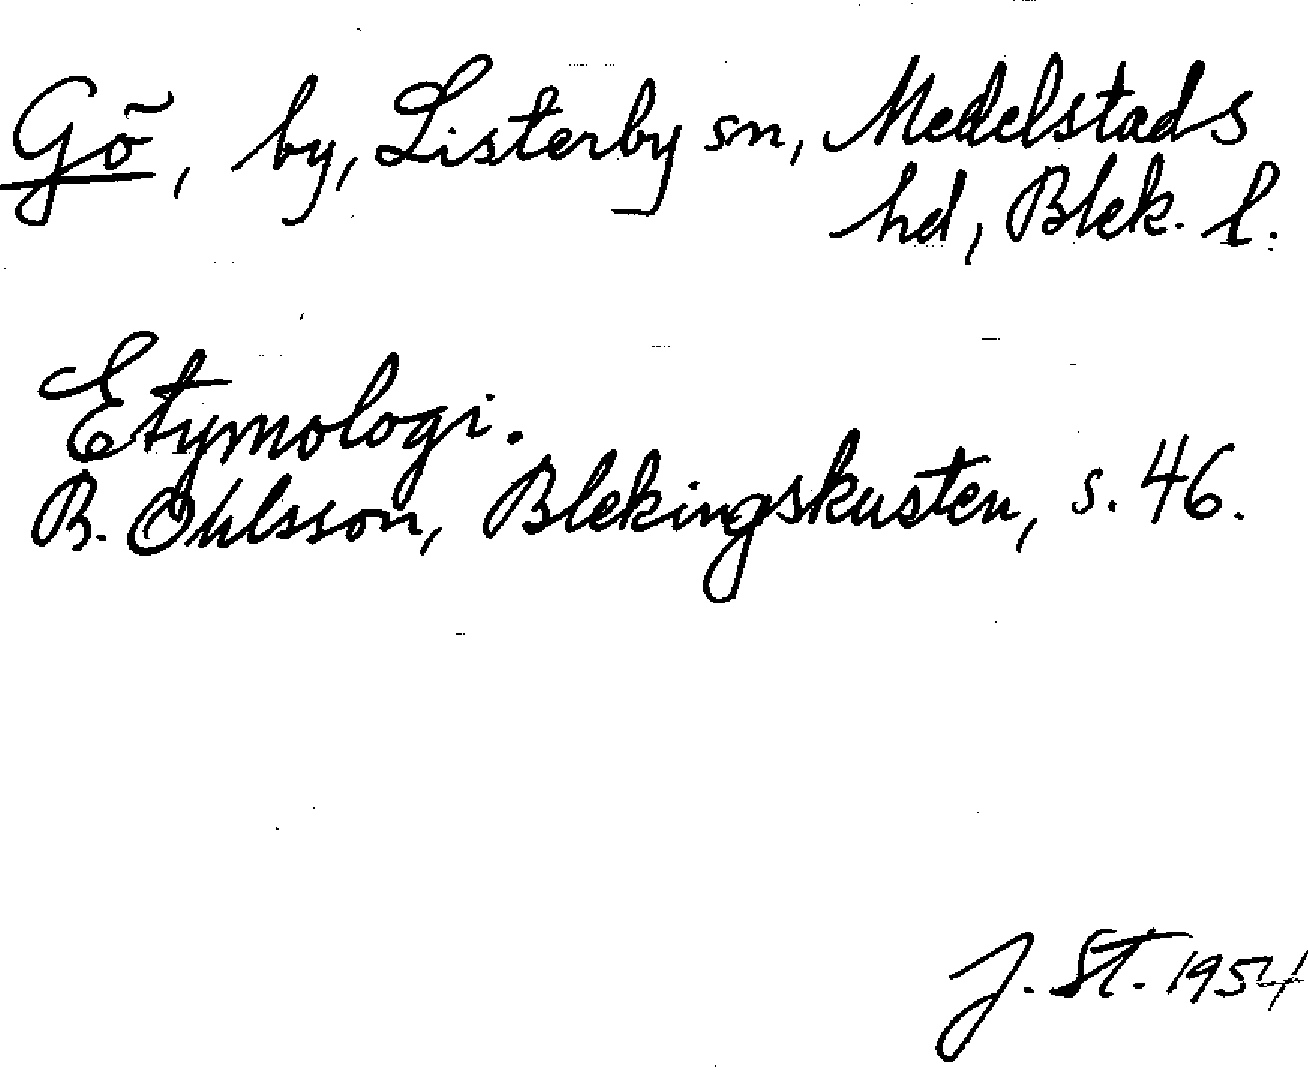 Gö, by, Listerby sn, Medelstads
hd, Blek. l.
Etymologi.
B. Ohlsson, Blekingskusten, s. 46.
J. St. 1954